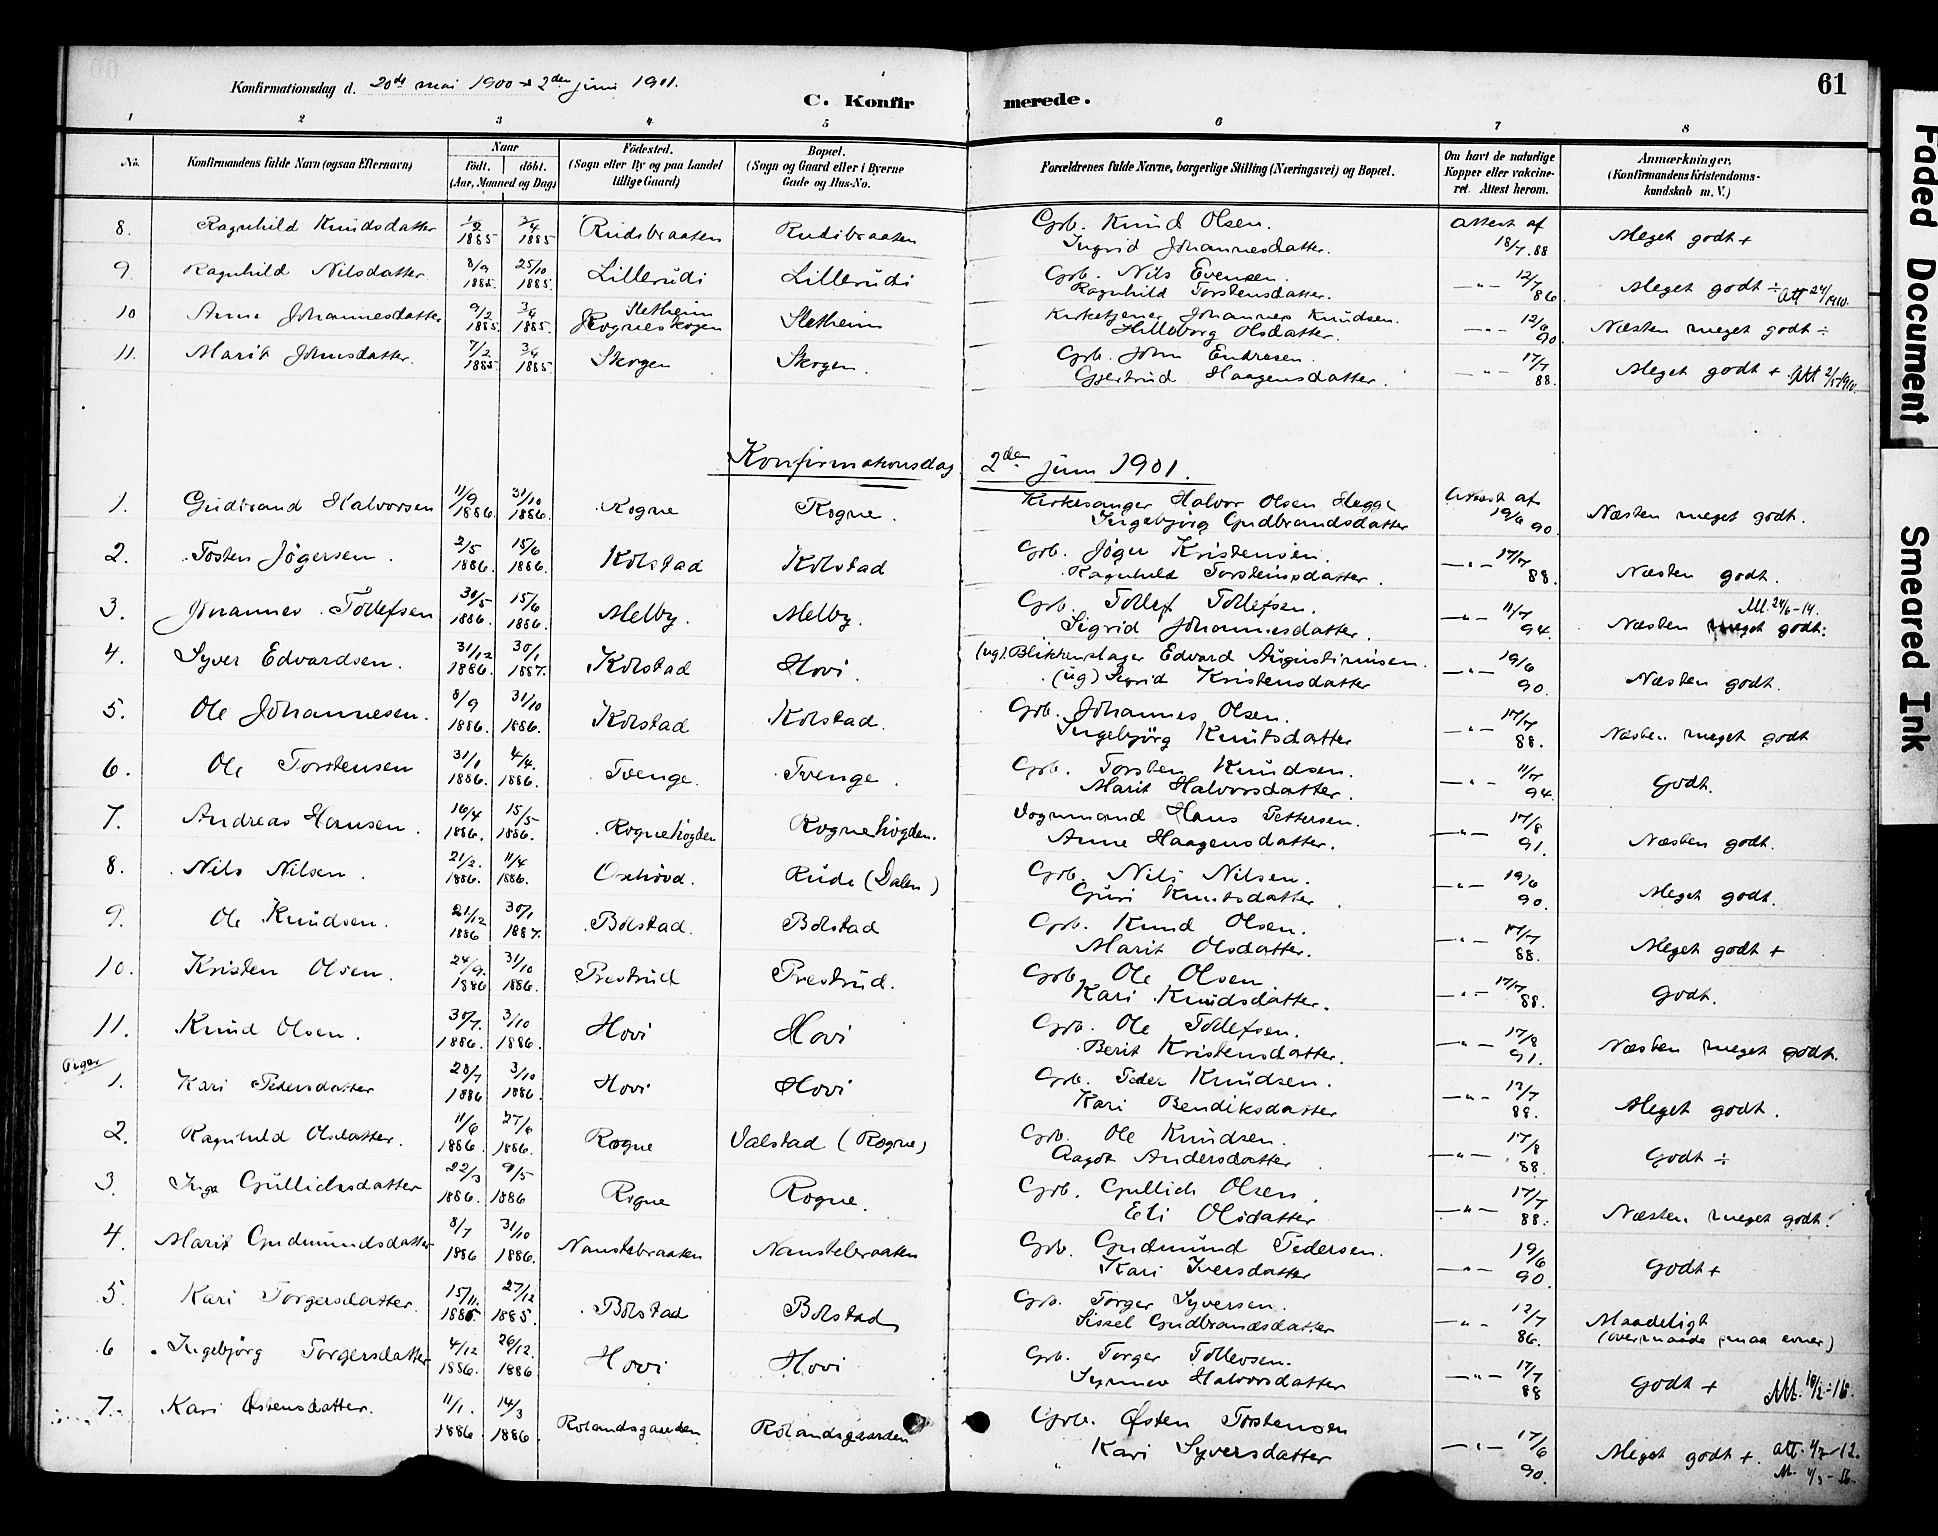 61
Konfirmationsdag d. 20de mai 1900 2den juni 1901.
C. Konfirmerede.
1 2 3 4 5 6 7 8
No. Konfirmandens fulde Navn (ogsaa Efternavn) Naar födt. döbt. (Aar, Maaned og Dag) Födested. (Sogn eller By og paa Landet tillige Gaard) Bopæl. (Sogn og Gaard eller i Byerne Gade og Hus-No. Forældrenes fulde Navne, borgerlige Stilling (Næringsvei) og Bopæl. Om havt de naturlige Kopper eller vakcineret. Attest herom. Anmærkninger. (Konfirmandens Kristendomskundskab m. V.)
8. Ragnhild Knudsdatter 1/2 1885 3/4 1885 Rudibraaten Rudibraaten Grb. Knud Olsen. Ingrid Johannesdatter. Attest af 18/7.88 Meget godt +
9. Ragnhild Nilsdatter 8/9 1885. 25/10 1885. Lillerudi Lillerudi Grb. Nils Evensen. Ragnhild Torstensdatter. —"— 12/7 86. Meget godt ÷ Att 24/ 1910.
10 Anne Johannesdatter 9/2 1885. 3/4 1885. Sletheim Rogneskogen Sletheim Kirketjener Johannes Knudsen. Hilleborg Olsdatter. —"— 12/6 90. Næsten meget godt ÷
11. Marit Johnsdatter. 7/2 1885 3/4 1885. Skogen Skogen. Grb. John Endresen. Gjertrud Haagensdatter. —"— 17/7 88. Meget godt + Att 2/5 1910.
Konfirmationsdag 2den juni 1901.
1. Gudbrand Halvorsen 11/9 1886. 31/10 1886. Rogne Rogne. Kirkesanger Halvor Olsen Hegge Ingebjörg Gudbrandsdatter Attest af 19/6 90. Næsten meget godt.
2. Tosten Jögersen. 2/5 1886. 15/6 1886. Kolstad Kolstad Grb. Jöger Kristensen. Ragnhild Torstensdatter. —"— 17/7 88. Næsten godt.
3. Johannes Tollefsen 30/5 1886. 15/6 1886. Melby. Melby. Grb. Tollef Tollefsen. Sigrid Johannesdatter. —"— 11/7 94. Næsten meget godt. M. 24/6-14.
4. Syver Edvardsen. 31/12 1886. 30/1 1887. Kolstad Hovi. (ug). Blikkenslager Edvard Augustinusen. (ug) Sigrid Kristensdatter —"— 19/6 90. Næsten godt.
5. Ole Johannesen. 8/9 1886. 31/10 1886. Kolstad Kolstad. Grb. Johannes Olsen. Ingebjörg Knutsdatter —"— 17/7 88. Næsten meget godt
6. Ole Torstensen 31/1 1886. 4/4. 1886. Tvenge. Tvenge. Grb. Torsten Knudsen. Marit Halvorsdatter. —"— 11/7 94. Godt.
7. Andreas Hansen. 16/4 1886. 15/5 1886. Rognehögden Rognehögden. Vognmand Hans Pettersen. Anne Haagensdatter. —"— 17/8 91. Næsten godt.
8. Nils Nilsen. 21/2. 1886. 11/4 1886. Oxehovd. Rudi (Dalen) Grb. Nils Nilsen. Guri Knutsdatter. —"— 19/6 90. Meget godt.
9. Ole Knudsen. 21/12 1886 30/1 1887. Bolstad. Bolstad Grb. Knud Olsen. Marit Olsdatter. —"— 17/7 88. Meget godt +
10. Kristen Olsen. 24/9. 1886 31/10 1886. Prestrud Prestrud. Grb. Ole Olsen. Kari Knudsdatter. —"— 17/7 88. Godt.
11. Knud Olsen. 30/7. 1886. 3/10 1886. Hovi Hovi Grb. Ole Tollefsen. Berit Kristensdatter. —"— 17/8 91. Næsten meget godt.
Piger
1. Kari Pedersdatter 28/7 1886 3/10 1886. Hovi Hovi Grb. Peder Knudsen. Kari Bendiksdatter —"— 17/7 88. Meget godt.
2. Ragnhild Olsdatter. 11/6 1886. 27/6 1886. Rogne Valstad (Rogne) Grb. Ole Knudsen. Aagot Andersdatter. —"— 17/8 88. Godt ÷
3. Inga Gullichsdatter 22/3 1886. 9/5 1886 Rogne Rogne. Grb. Gullich Olsen. Eli Olsdatter —"— 17/7 88. Næsten meget godt.
4. Marit Gudmundsdatter 8/7 1886 31/10 1886. Naustebraaten Naustebraaten Grb. Gudmund Pedersen. Kari Iversdatter —"— 19/6 90. Godt +
5. Kari Torgersdatter. 15/11. 1885 27/12 1885. Bolstad Bolstad Grb. Torger Syversen. Sissel Gudbrandsdatter —"— 12/7 86. Maadeligt (overmaade smaa evner)
6 Ingebjörg Torgersdatter 4/12 1886. 26/12. 1886 Hovi Hovi Grb. Torger Tollevsen. Synnev Halvorsdatter —"— 17/7 88 Godt + M. 19/2-16.
7. Kari Östensdatter. 11/1. 1886. 14/3 1886 Rolandsgaarden Rolandsgaarden Grb. Östen Torstensen Kari Syversdatter —"— 17/6 90. Meget godt +. att. 4/7-12. M. 4/3-16.
Faded Document
Smeared Ink